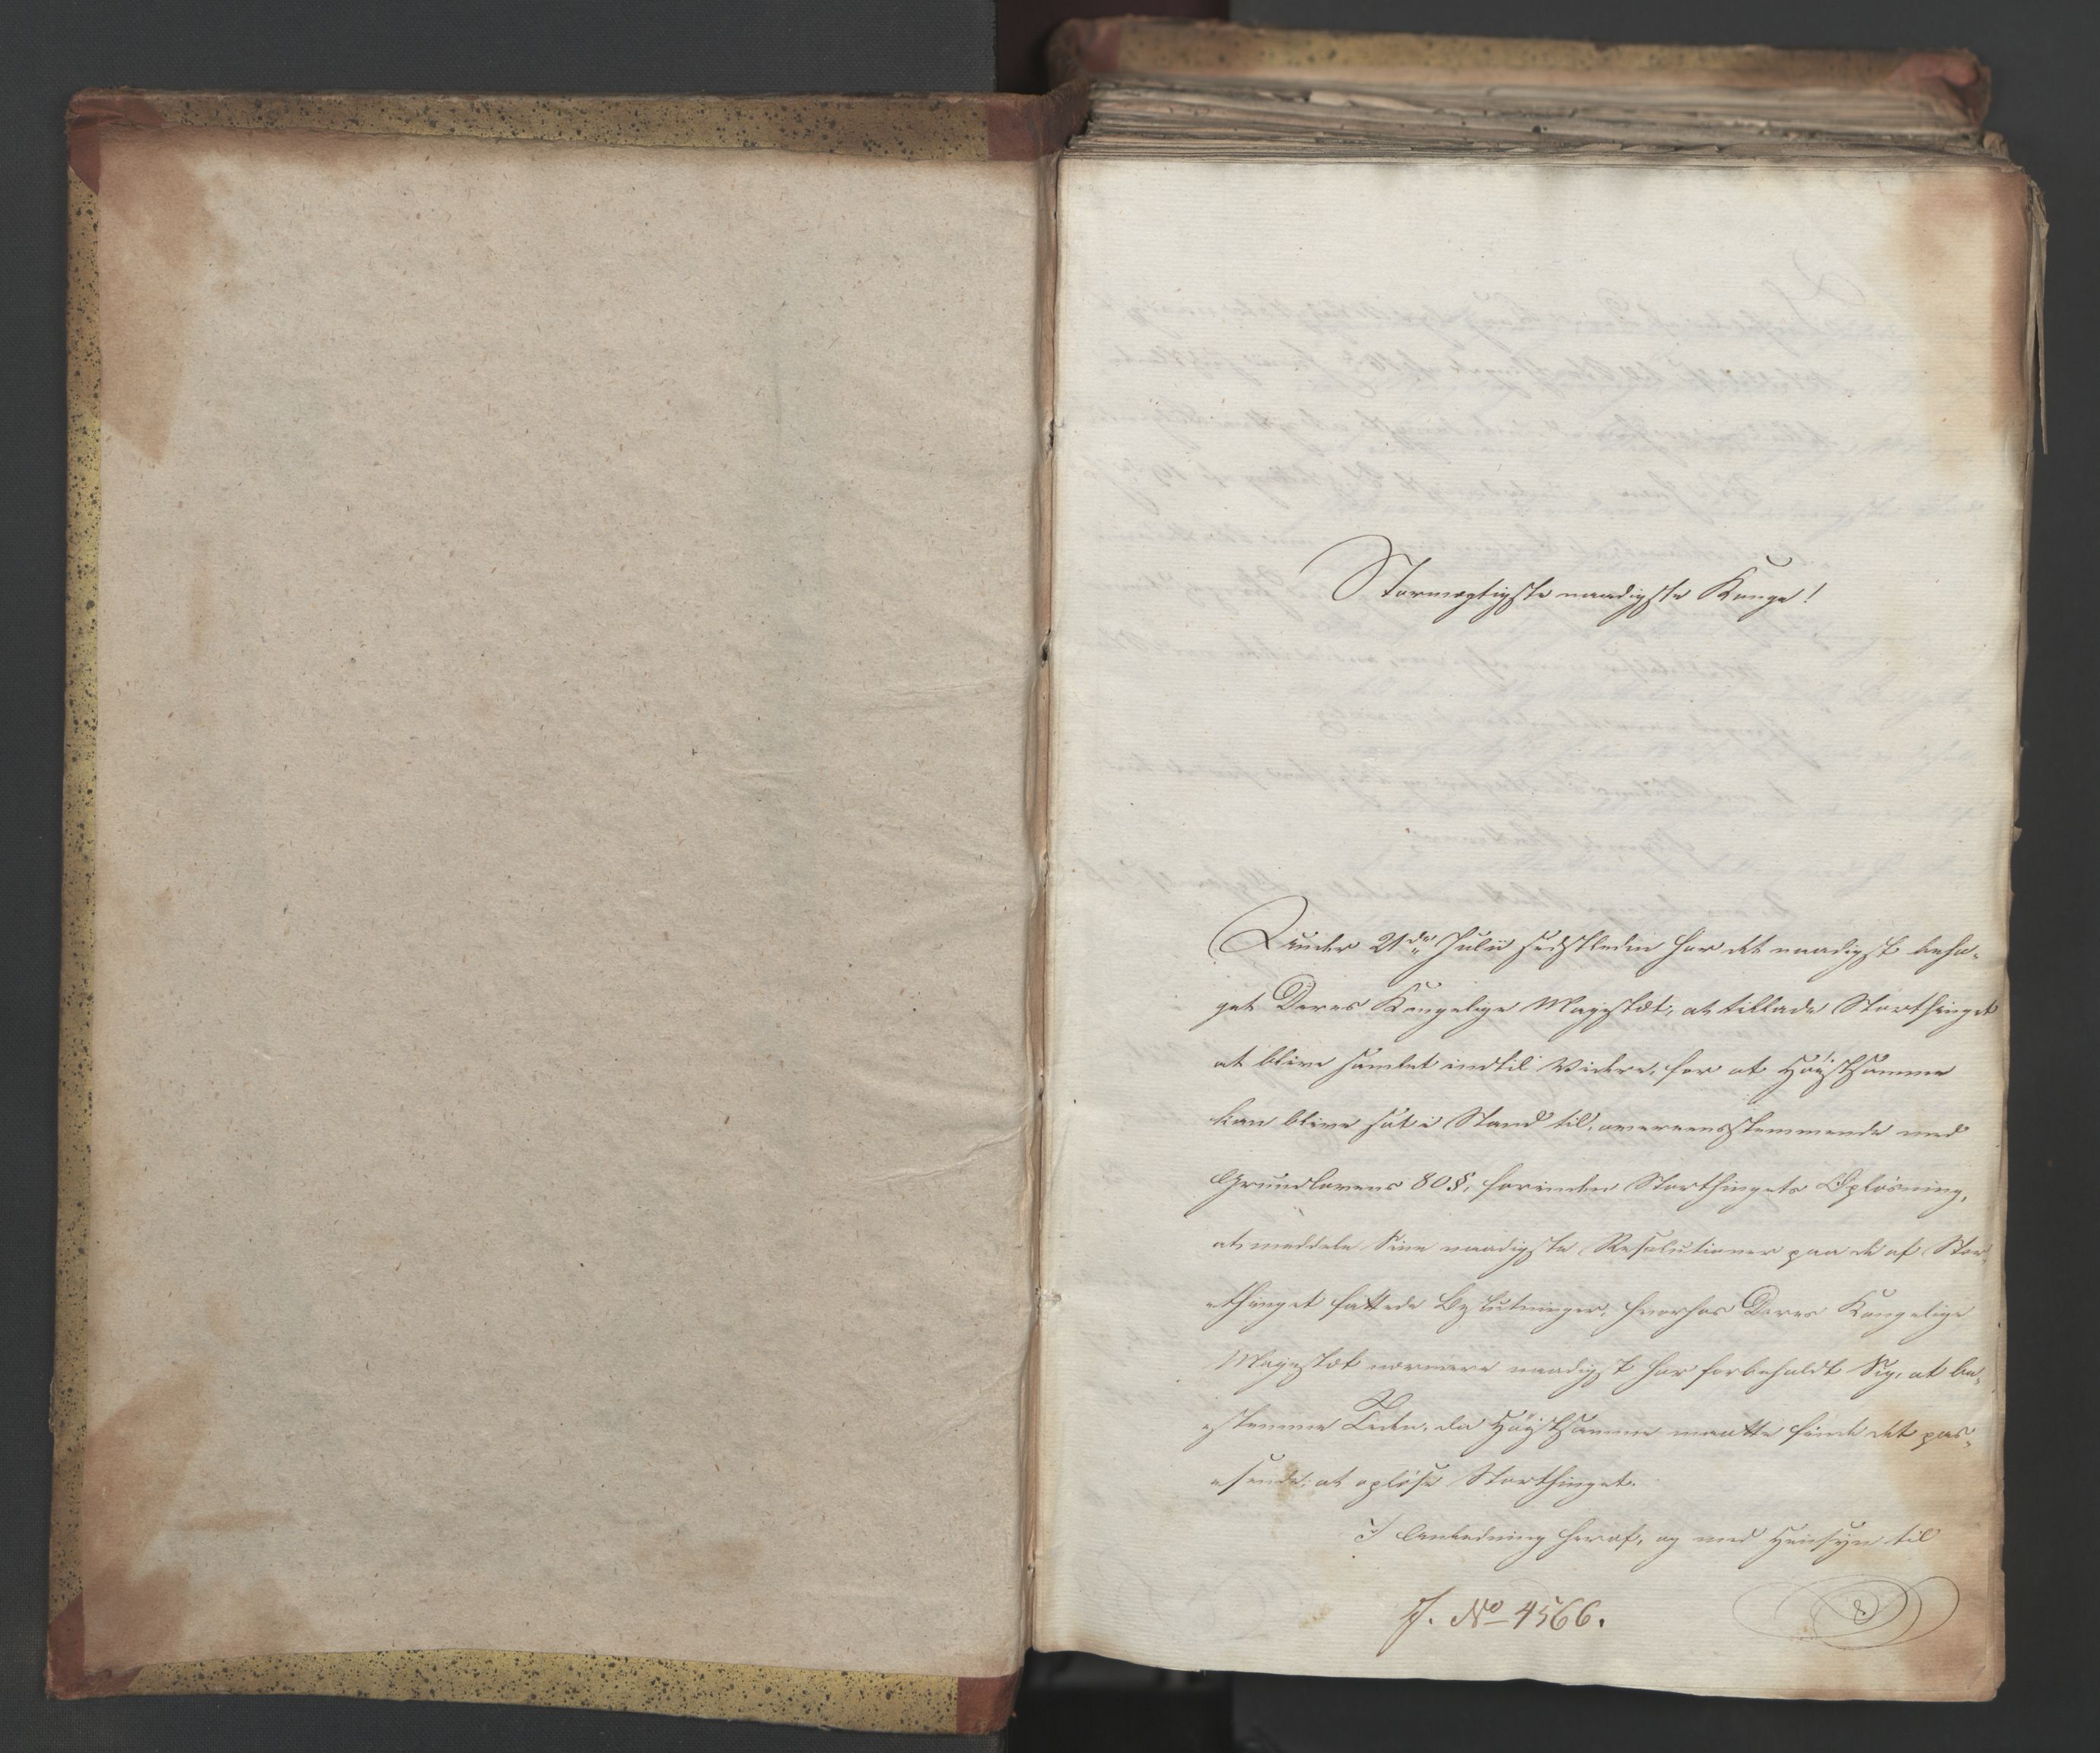 Stormægtigste naadigste Konge!
Under 21de Julii sidstleden har det naadigst beha-
get Deres Kongelige Majestæt, at tillade Storthinget
at blive samlet indtil Videre, for at Høistsamme
kan blive sat i Stand til, overeensstemmende med
Grundlovens 80 §, forinden Storthingets Opløsning,
at meddele Sine naadigste Resolutioner paa de af Stor-
thinget fattede Beslutninger, hvorhos Deres Kongelige
Majestæt nærmere naadigst har forbeholdt Sig, at be-
stemme Tiden, da Høistsamme maatte finde det pas-
sende at opløse Storthinget.
I Anledning heraf, og med Hensyn til
J. No 4566.